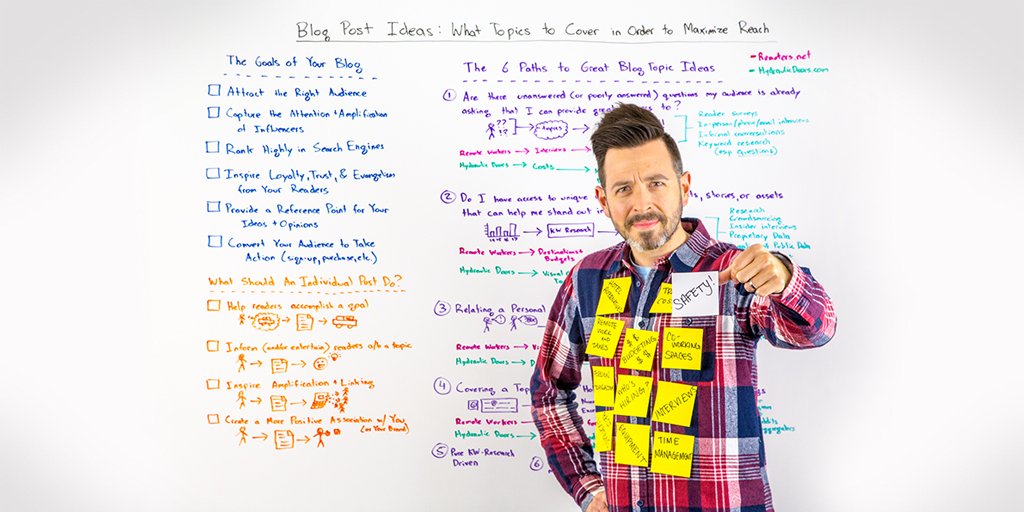 Blog Post Ideas: What Topics to Cover in Order to Maximize Reach
The Goals of Your Blog
Attract the Right Audience
Capture the Attention + Amplification
of Influencers
Rank Highly in Search Engines
Inspire Loyalty, Trust, & Evangelism
from Your Readers
Provide a Reference Point for Your
Ideas + Opinions
Convert Your Audience to Take
Action (sign-up, purchase, etc.)
What Should An Individual Post Do?
Help readers accomplish a goal
Inform (and/or entertain) readers o/n a topic
Inspire Amplification + Linking
Create a More Positive Association w/ You
(or Your Brand)
The 6 Paths to Great Blog Topic Ideas
- Remoters.net
- HydraulicDoors.com
① Are there unanswered (or poorly answered) questions my audience is already
asking that I can provide great to?
?? !?
Topics
Reader surveys
In-person/phone/email interviews
Informal conversations
Keyword research
(esp questions)
Remote Workers → Interviews →
Hydraulic Doors → Costs
② Do I have access to unique stories, or assets
that can help me stand out
KW Research
Research
Crowdsourcing
Insider interviews
Proprietary Data
Public Data
Remote Workers → Destinations +
Budgets
Hydraulic Doors → Visual
③ Relating a Personal
Remote Workers →
Hydraulic Doors →
④ Covering a
Remote Workers
Hydraulic Doors →
⑤ Pure KW-Research
Driven
⑥
SAFETY!
HOTEL
REMOTE
WORK
AND
TAXES
$ $
BUDGETING
$ $
CO-
WORKING
SPACES
WHO'S
HIRING?
INTERVIEWS
EQUIPMENT
TIME
MANAGEMENT